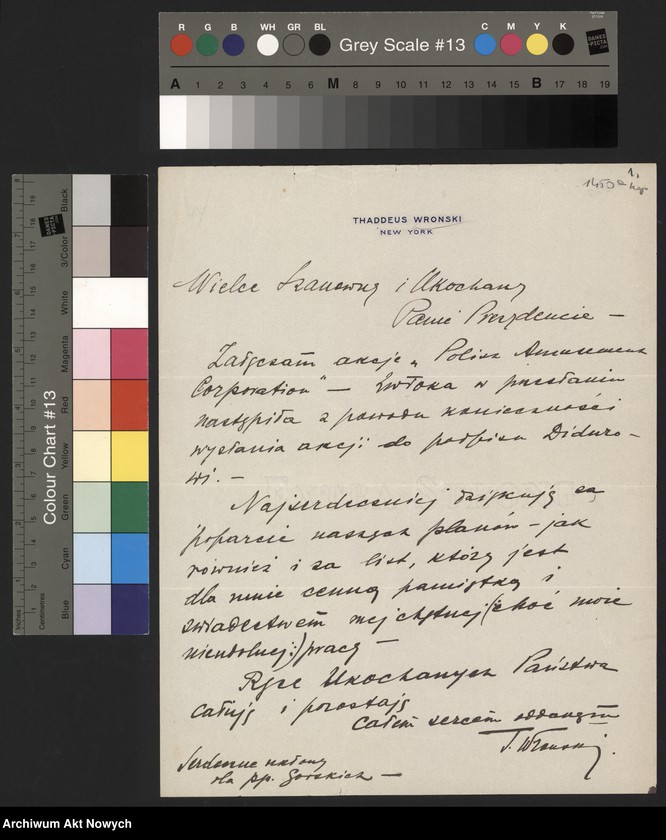 R G B WH GR BL Grey Scale #13 C M Y K
DANES PICTA .COM
A 1 2 3 4 5 6 M 8 9 10 11 12 13 14 15 B 17 18 19
Colour Chart #13
Blue Cyan Green Yellow Red Magenta White 3/Color Black
Inches Centimetres
1.
THADDEUS WRONSKI
NEW YORK
Wielce Szanowny i Ukochany
Panie Prezydencie —
Załączam akcje „Polish Amusement
Corporation" — Zwłoka w przesłaniu
nastąpiła z powodu konieczności
wysłania akcji do podpisu Diduro-
wi. —
Najserdeczniej dziękuję za
poparcie naszych planów – jak
również i za list, który jest
dla mnie cenną pamiątką i
świadectwem mej chętnej (choć może
nieudolnej:) pracy —
Ręce Ukochanych Państwa
całuję i pozostaję
całem sercem oddanym
T. Wronski.
Serdeczne ukłony
dla pp. Gorskich —
Archiwum Akt Nowych